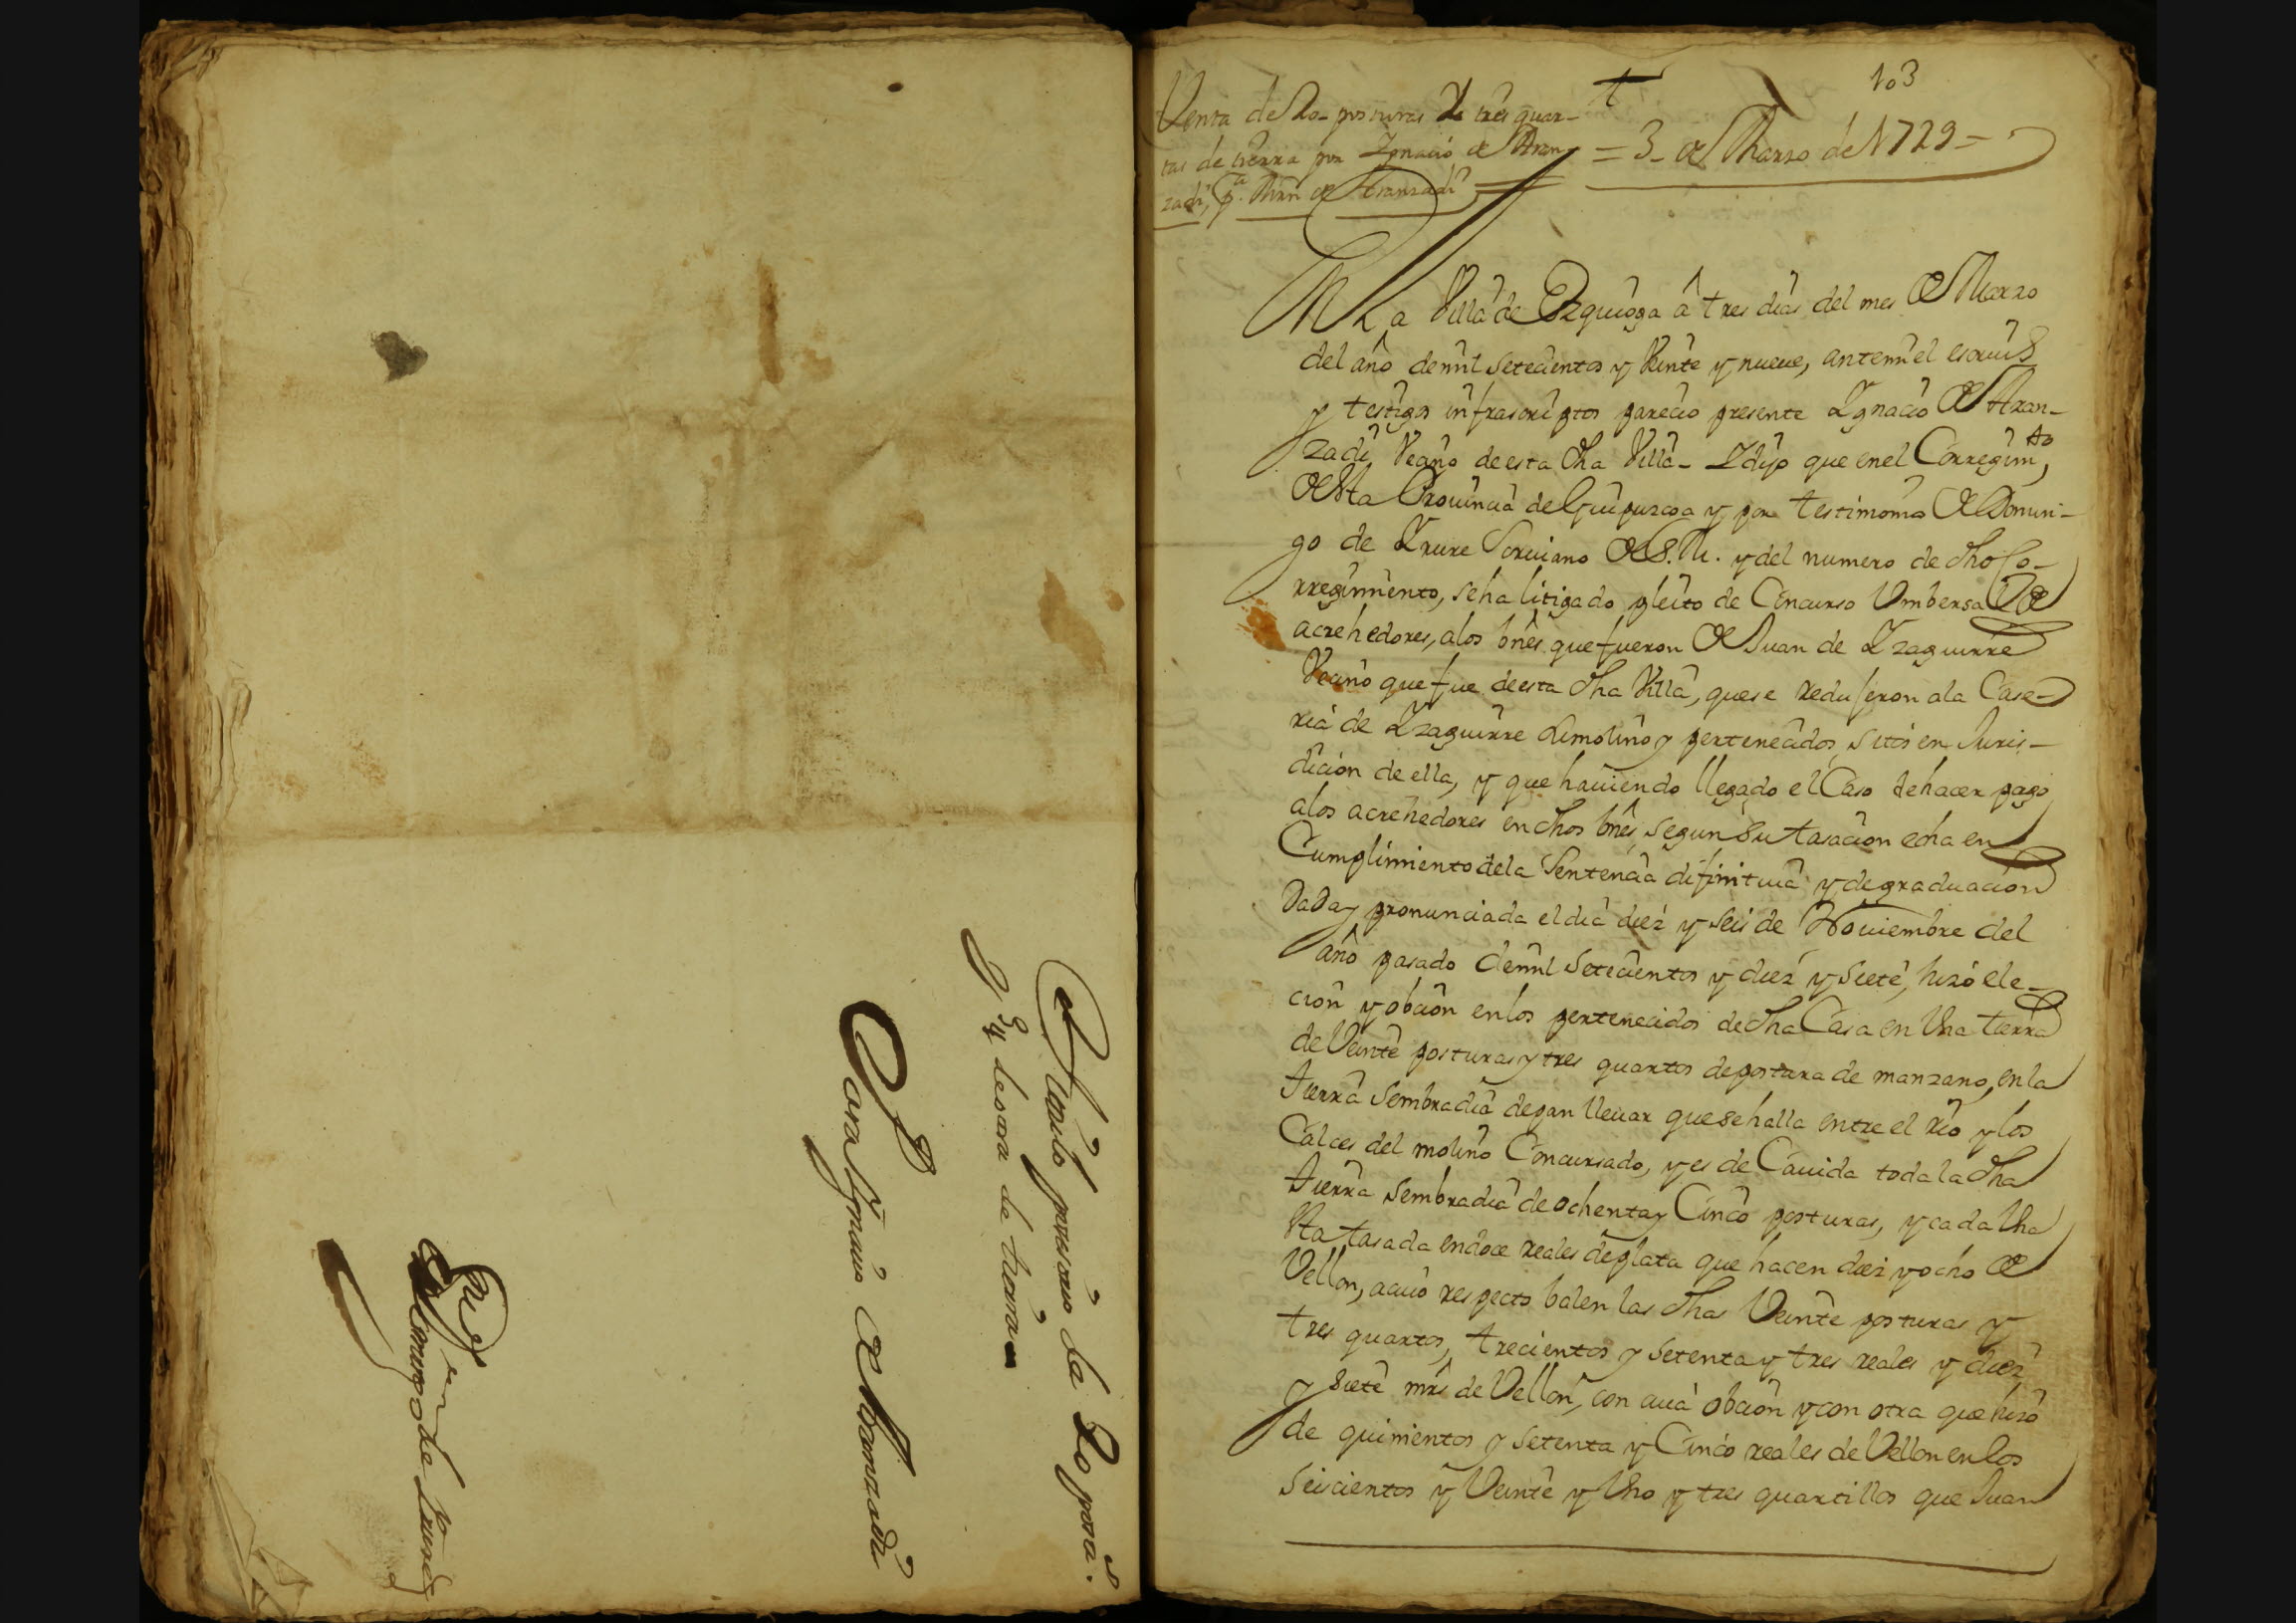 Titulo posesorio de 20 postª.
y 3/4 deora de tierra
Para Ygnacio de Aranzadi
Domingo de Yrure
103
Venta de 20 posturas de tres quar-
tas de tierra por Ygnacio de Aran-
zadi, pª. Mrn de Aranzadi
= 3 de Marzo de 1729 =
En La Villa de Ezquioga â tres dias del mes de Marzo
del año de mil setecientos y Veinte y nueue, ante mi el escriuº
y testigos infrascriptos parecio presente Ygnacio de Aran-
zadi Vecino de esta dha Villa - Y dijo que en el Corregimto,
de Sta Prouincia de Guipuzcoa y por testimonio de Domin-
go de Yrure Scriuano de S. M. y del numero de dho Co-
rregimiento, se ha litigado pleito de Concurso Vmbersal de
acrehedores, a los bnês que fueron de Juan de Yzaguirre
Vecino que fue de esta dha Villa, que se redujeron ala Case-
ria de Yzaguirre Su molino y pertenecidos sitos en Juris-
dicion de ella, y que hauiendo llegado el Caso de hacer pago
alos acrehedores en dhos bnês segun Su tasacion echa en
Cumplimiento dela Sentencia difinitiua y de graduacion
Dada y pronunciada el dia diez y seis de Nouiembre del
año pasado de mil setecientos y diez y siete, hizo ele-
cion y obcion en los pertenecidos de dha Casa en Vna tierra
de Veinte posturas y tres quartos de postura de manzano, en la
tierra Sembradia de pan lleuar que se halla entre el Rio y los
Calces del molino Concursado, y es de Cauida toda la dha
tierra Sembradia de ochenta y Cinco posturas, y cada Vna
Sta tasada en doce reales de plata que hacen diez y ocho de
Vellon, a cuio respecto balen las dhas Veinte posturas y
tres quartos, trecientos y setenta y tres reales y diez
y siete mrs de Vellon, con cuia obcion y con otra que hizo
de quinientos y setenta y Cinco reales de Vellon en los
Seiscientos y Veinte y Vno y tres quartillos que Juan